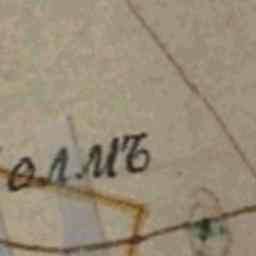 олмъ